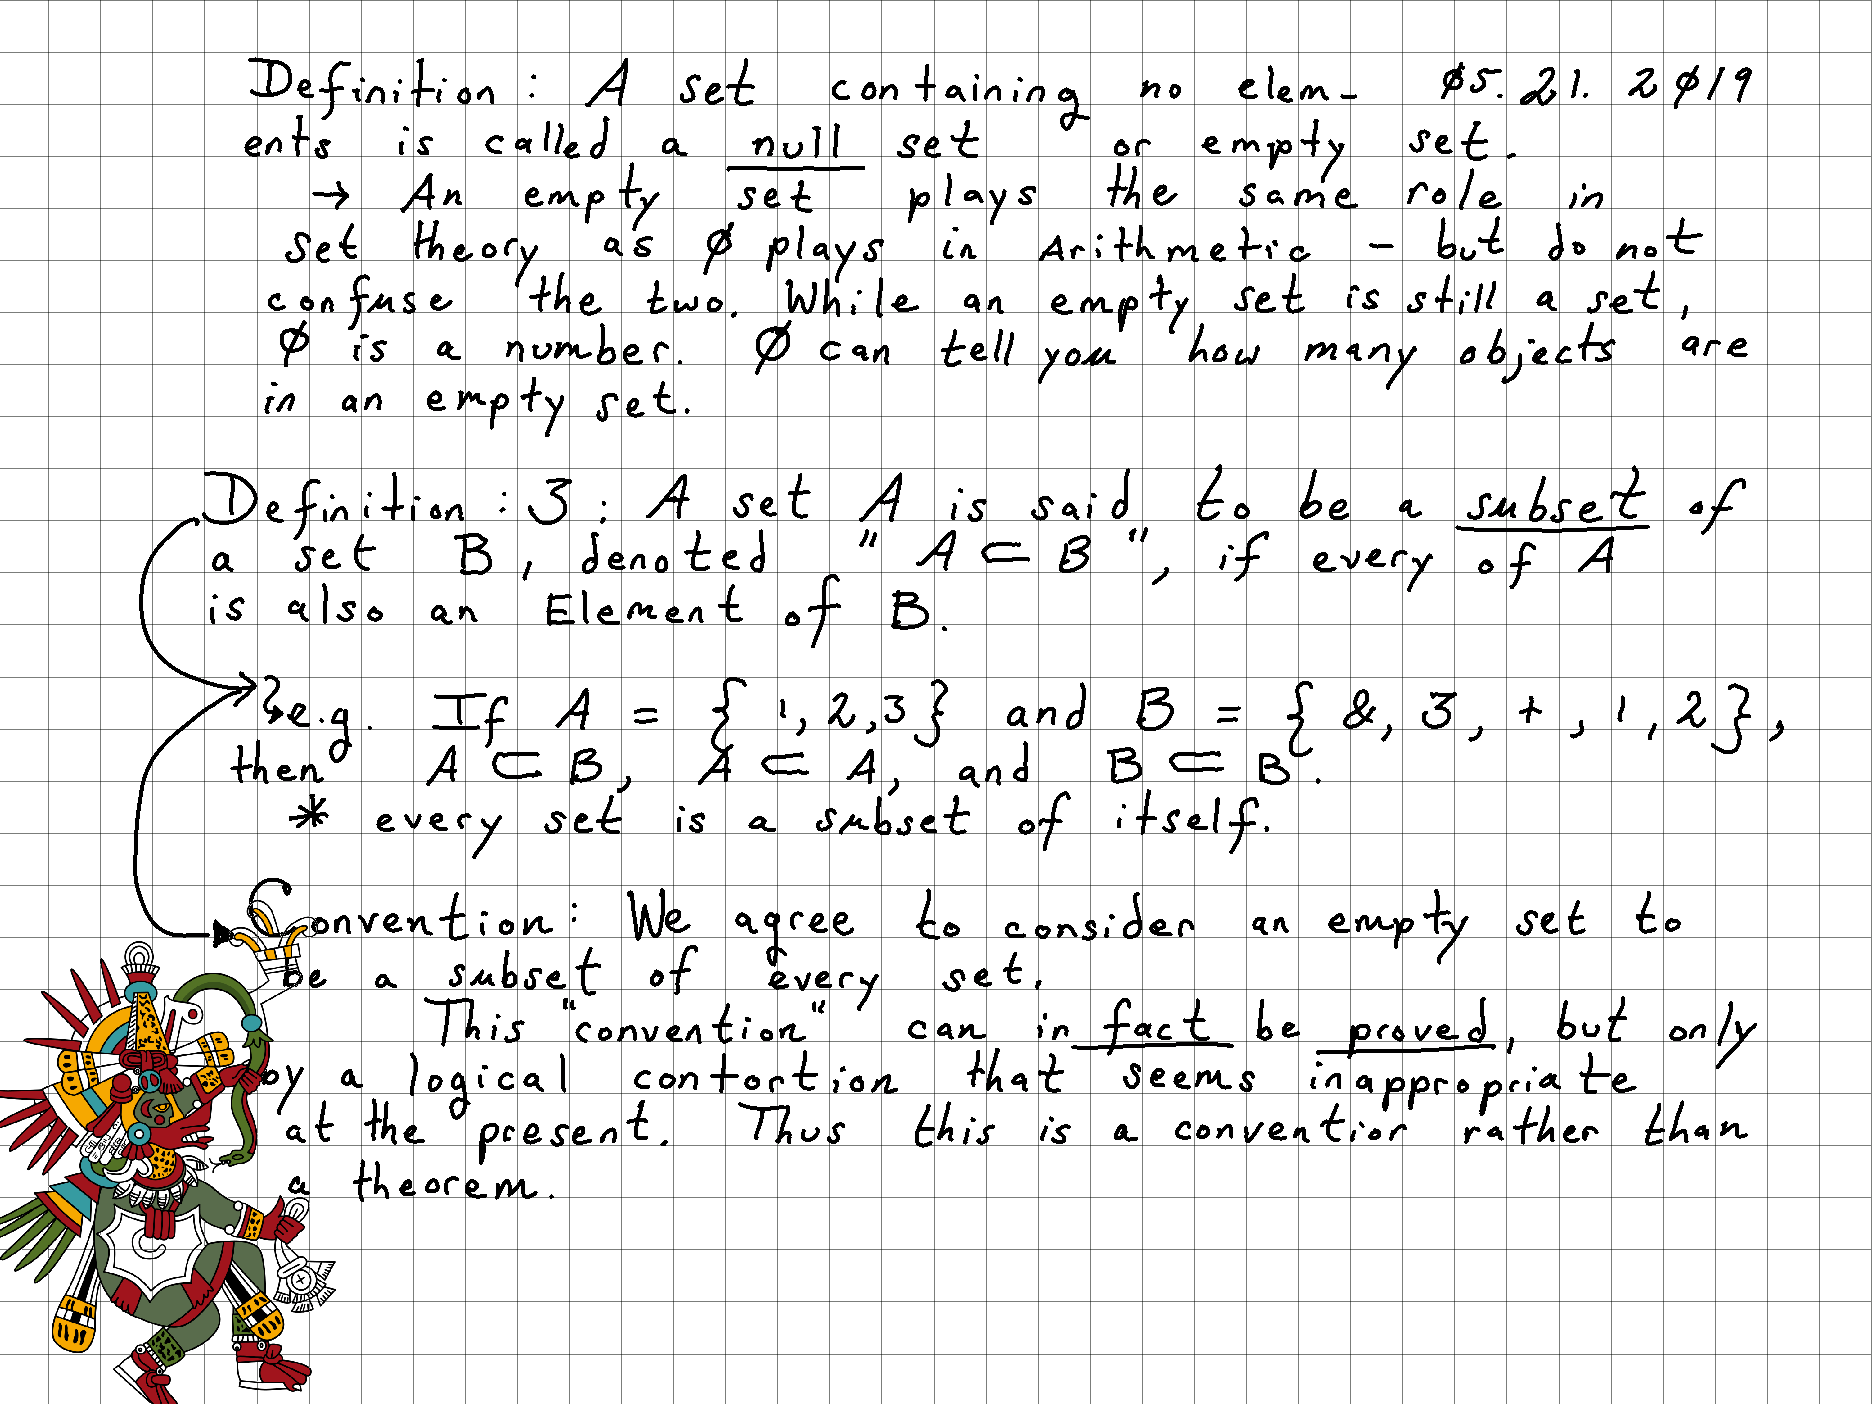 Definition: A set containing no elem- ø5.21.2ø19
ents is called a null set or empty set.
→ An empty set plays the same role in
set theory as ø plays in Arithmetic - but do not
confuse the two. While an empty set is still a set,
ø is a number. ø can tell you how many objects are
in an empty set.
Definition: 3: A set A is said to be a subset of
a set B, denoted "A ⊂ B", if every of A
is also an Element of B.
e.g. If A = { 1, 2, 3 } and B = { &, 3, +, 1, 2 },
then A ⊂ B, A ⊂ A, and B ⊂ B.
* every set is a subset of itself.
Convention: We agree to consider an empty set to
be a subset of every set.
This "convention" can in fact be proved, but only
by a logical contortion that seems inappropriate
at the present. Thus this is a convention rather than
a theorem.